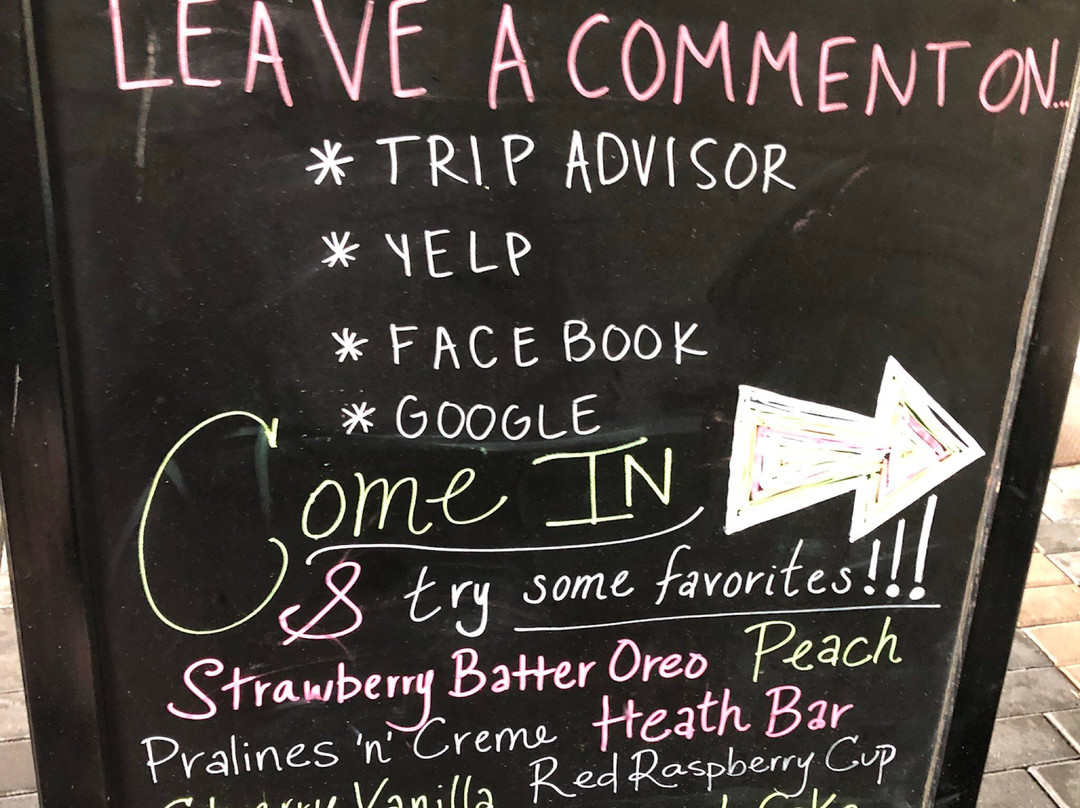 LEAVE A COMMENT ON...
* TRIP ADVISOR
* YELP
* FACEBOOK
* GOOGLE
COME IN
& try some favorites!!!
Strawberry Batter Oreo Peach
Heath Bar
Pralines 'n' Creme
Red Raspberry Cup
Vanilla